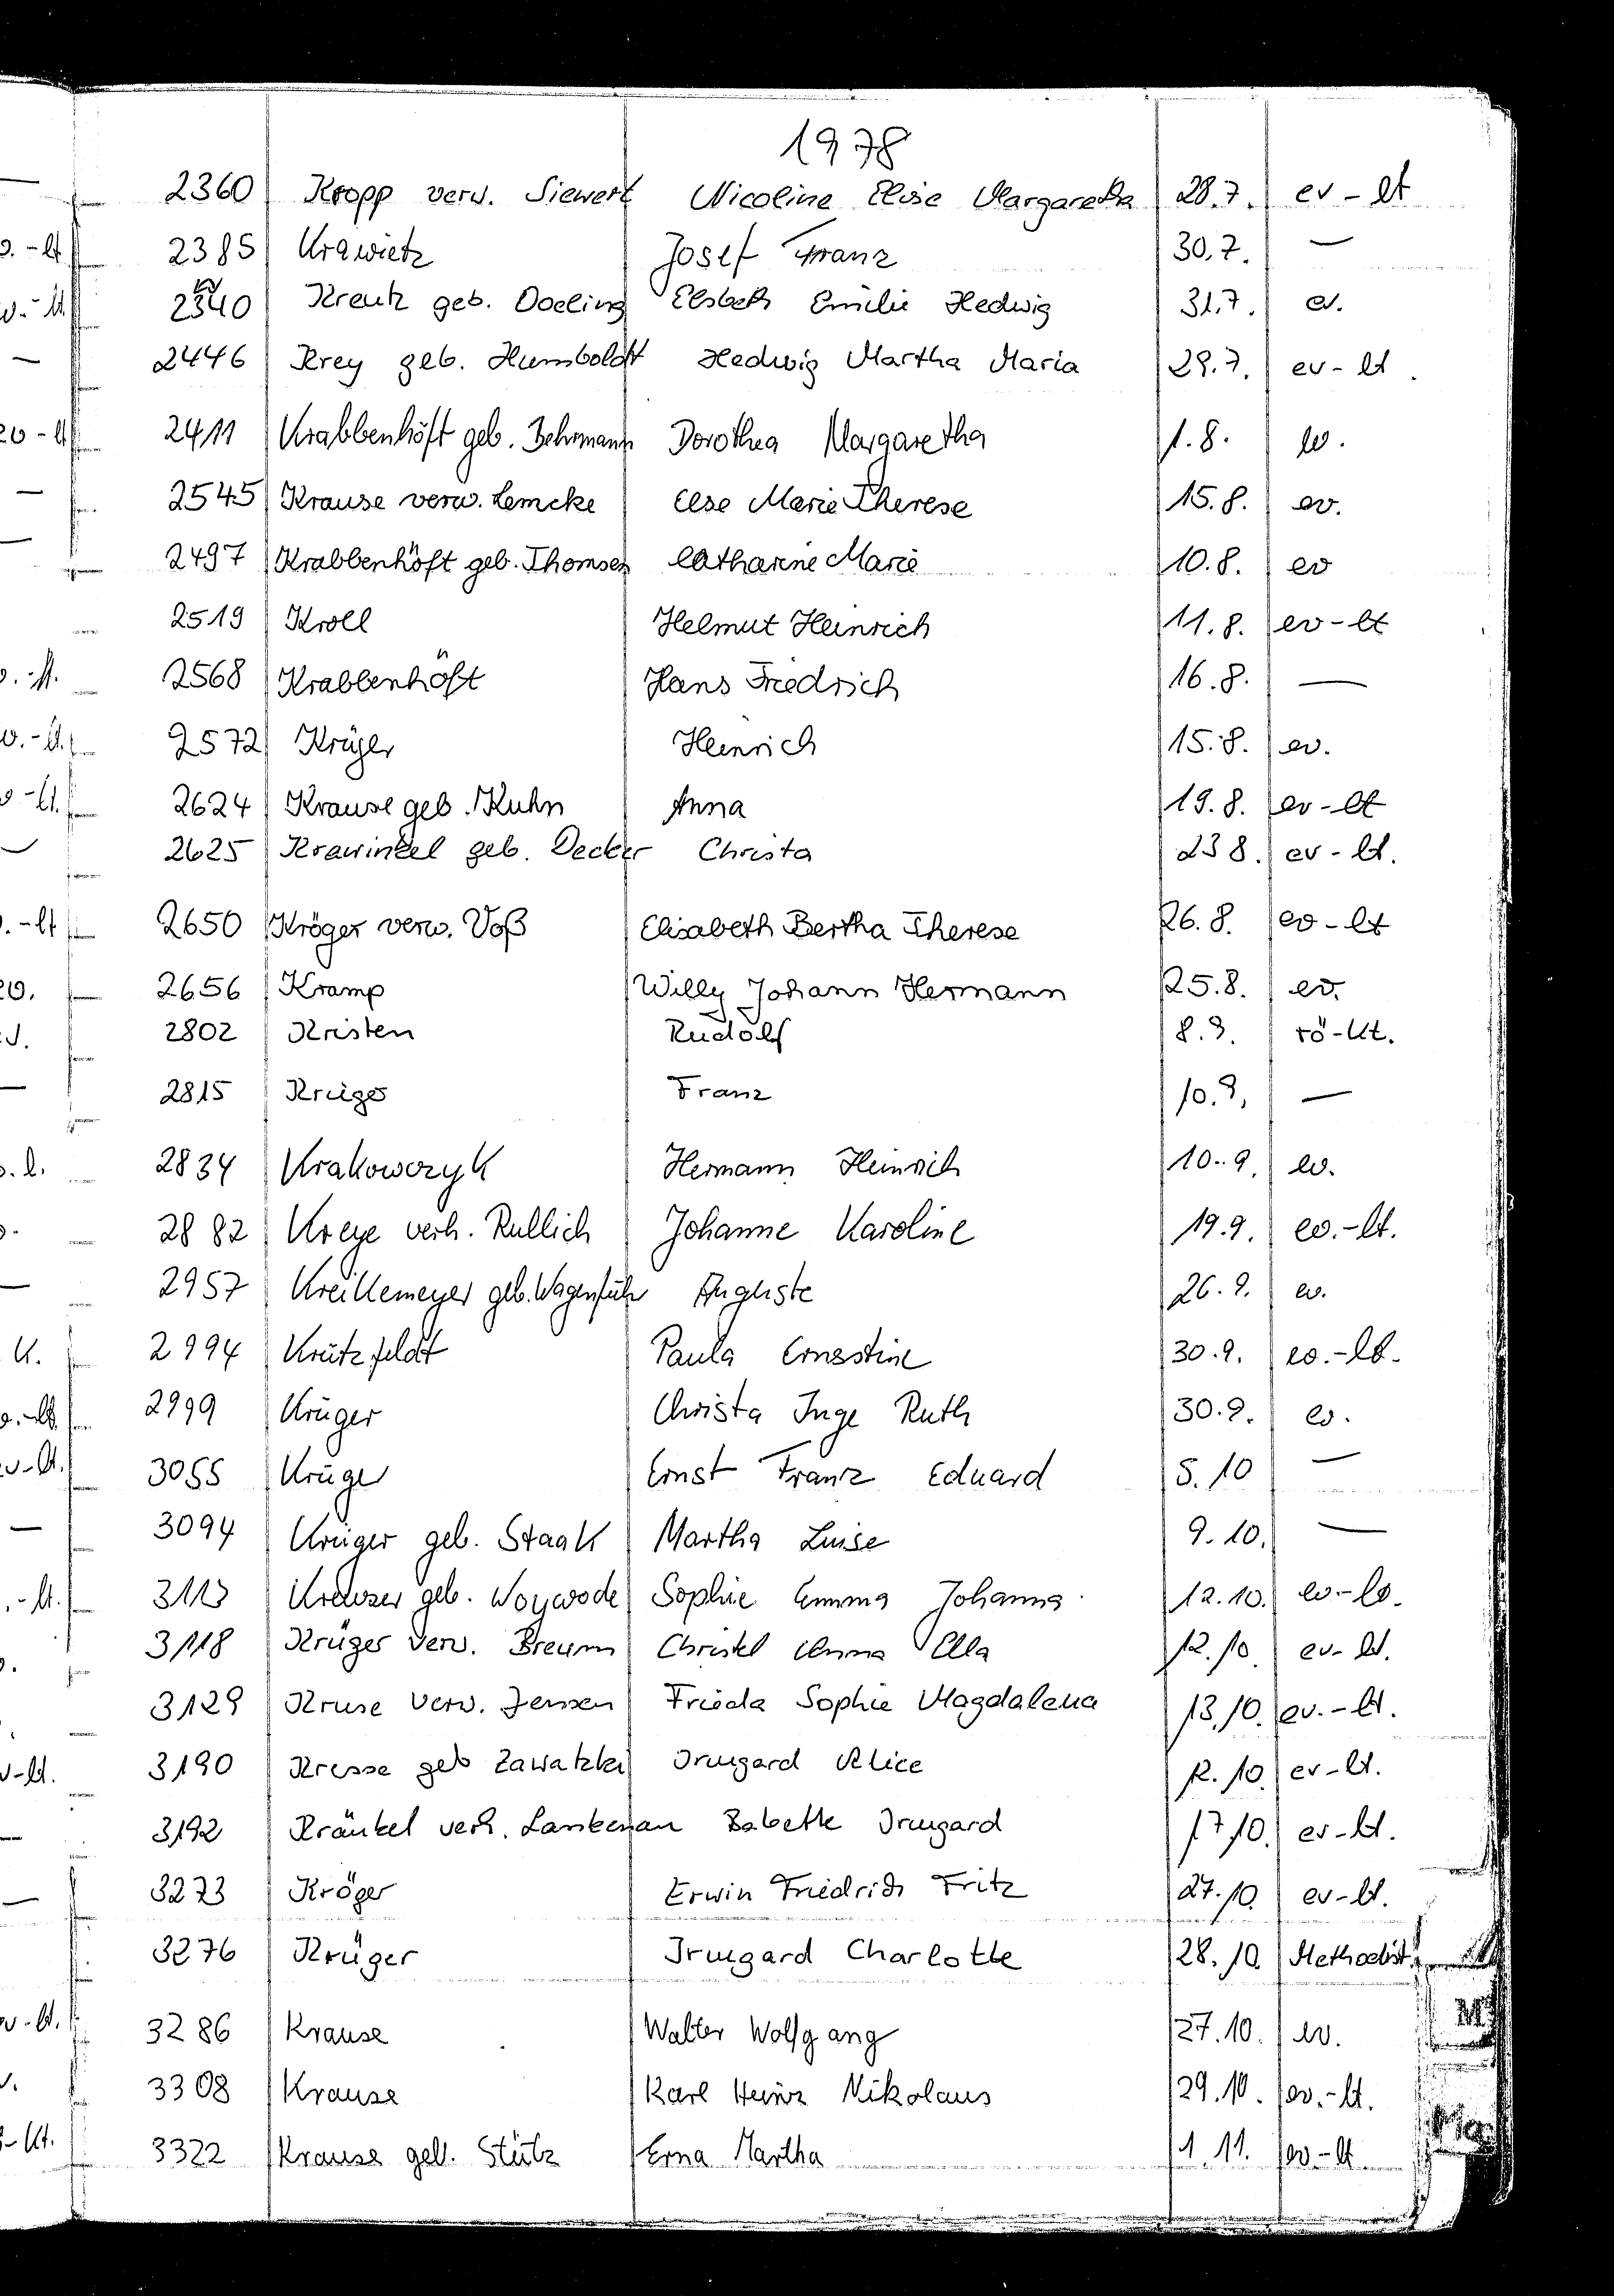 1978
2360 Kropp verw. Siewert Nicoline Elise Margaretha 28.7. ev-lt
2385 Krawietz Josef Franz 30.7. —
2340 Kreutz geb. Doeling Elsbeth Emilie Hedwig 31.7. ev.
2446 Krey geb. Humboldt Hedwig Martha Maria 29.7. ev-lt.
2411 Krabbenhöft geb. Behrmann Dorothea Margaretha 1.8. ev.
2545 Krause verw. Lemcke Else Marie Therese 15.8. ev.
2497 Krabbenhöft geb. Thomsen Catharine Marie 10.8. ev
2519 Kroll Helmut Heinrich 11.8. ev-lt
2568 Krabbenhöft Hans Friedrich 16.8. —
2572 Krüger Heinrich 15.8. ev.
2624 Krause geb. Kuhn Anna 19.8. ev-lt
2625 Krawinkel geb. Decker Christa 23 8. ev-lt.
2650 Kröger verw. Voß Elisabeth Bertha Therese 26.8. ev-lt
2656 Kramp Willy Johann Hermann 25.8. ev.
2802 Kristen Rudolf 8.9. rö-kt.
2815 Krüger Franz 10.9. —
2834 Krakowczyk Hermann Heinrich 10.9. ev.
2882 Kreye verh. Rullich Johanne Karoline 19.9. ev.-lt.
2957 Kreikemeyer geb. Wagenführ Auguste 26.9. ev.
2994 Krützfeldt Paula Ernestine 30.9. ev.-lt.
2999 Krüger Christa Inge Ruth 30.9. ev.
3055 Krüger Ernst Franz Eduard 5.10 —
3094 Krüger geb. Staak Martha Luise 9.10. —
3113 geb. Woywode Sophie Emma Johanna 12.10.
3118 Krüger verw. Christel Anna Ella 12.10. ev-lt.
3129 Kruse verw. Jensen Frieda Sophie Magdalena 13.10. ev.-lt.
3190 Kresse geb Zawatzki Irmgard Alice 12.10. ev-lt.
3192 Kränkel verh. Lankenau Babette Irmgard 17.10. ev-lt.
3273 Kröger Erwin Friedrich Fritz 27.10. ev-lt.
3276 Krüger Irmgard Charlotte 28.10. Methodist.
3286 Krause Walter Wolfgang 27.10. ev.
3308 Krause Karl Heinz Nikolaus 29.10. ev.-lt.
3322 Krause geb. Stütz Erna Martha 1.11. ev-lt